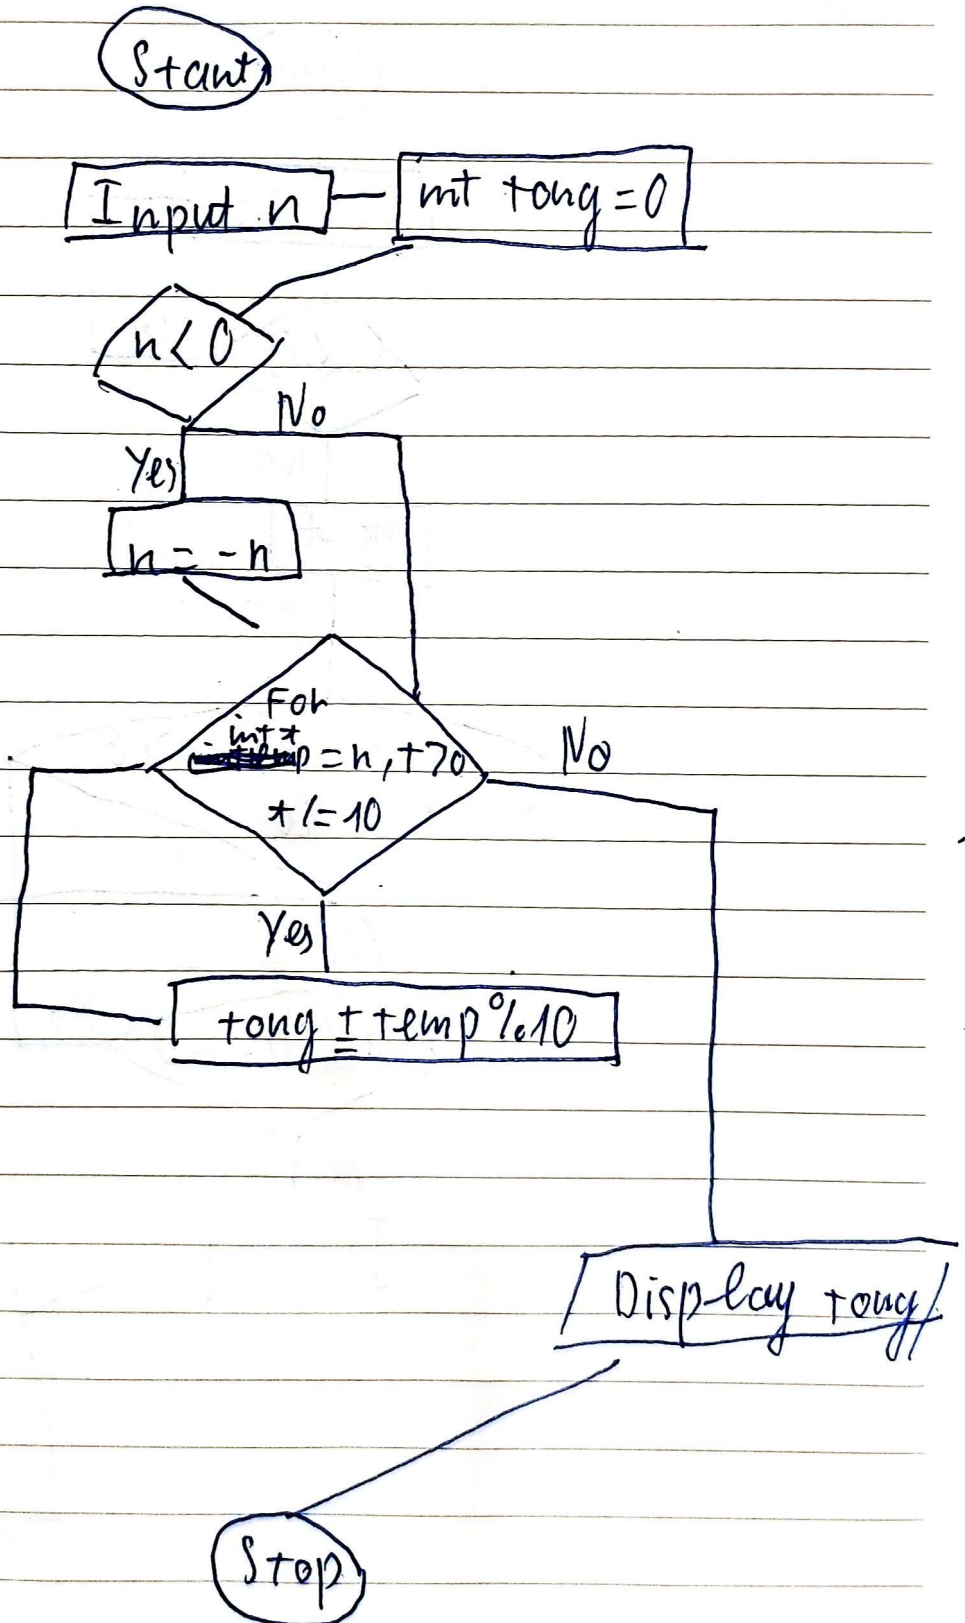 Start
Input n
int tong = 0
n < 0
No
Yes
n = -n
For
int t
= n, t > 0
t /= 10
No
Yes
tong += temp % 10
Display tong
Stop